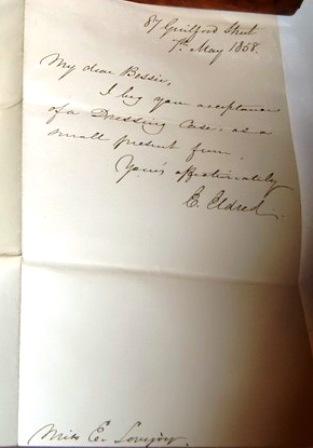 87 Guilford Street
7th May 1868.
My dear Bessie,
I beg your acceptance
of a Dressing Case, as a
small present from,
Yours affectionately
E. Eldred.
Miss E. Lovejoy.